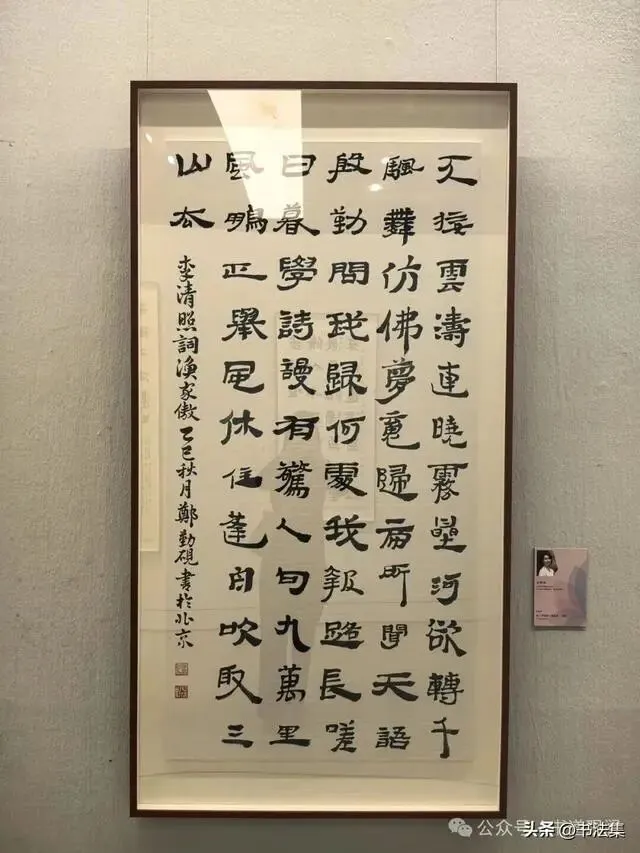 天接雲濤連曉霧星河欲轉千
颿舞仿佛夢魂歸帝所聞天語
殷勤問我歸何處我報路長嗟
日暮學詩謾有驚人句九萬里
風鵬正舉風休住蓬舟吹取三
山去
李清照詞漁家傲乙巳秋月鄭勤硯書於北京
公众号
头条 @书法集